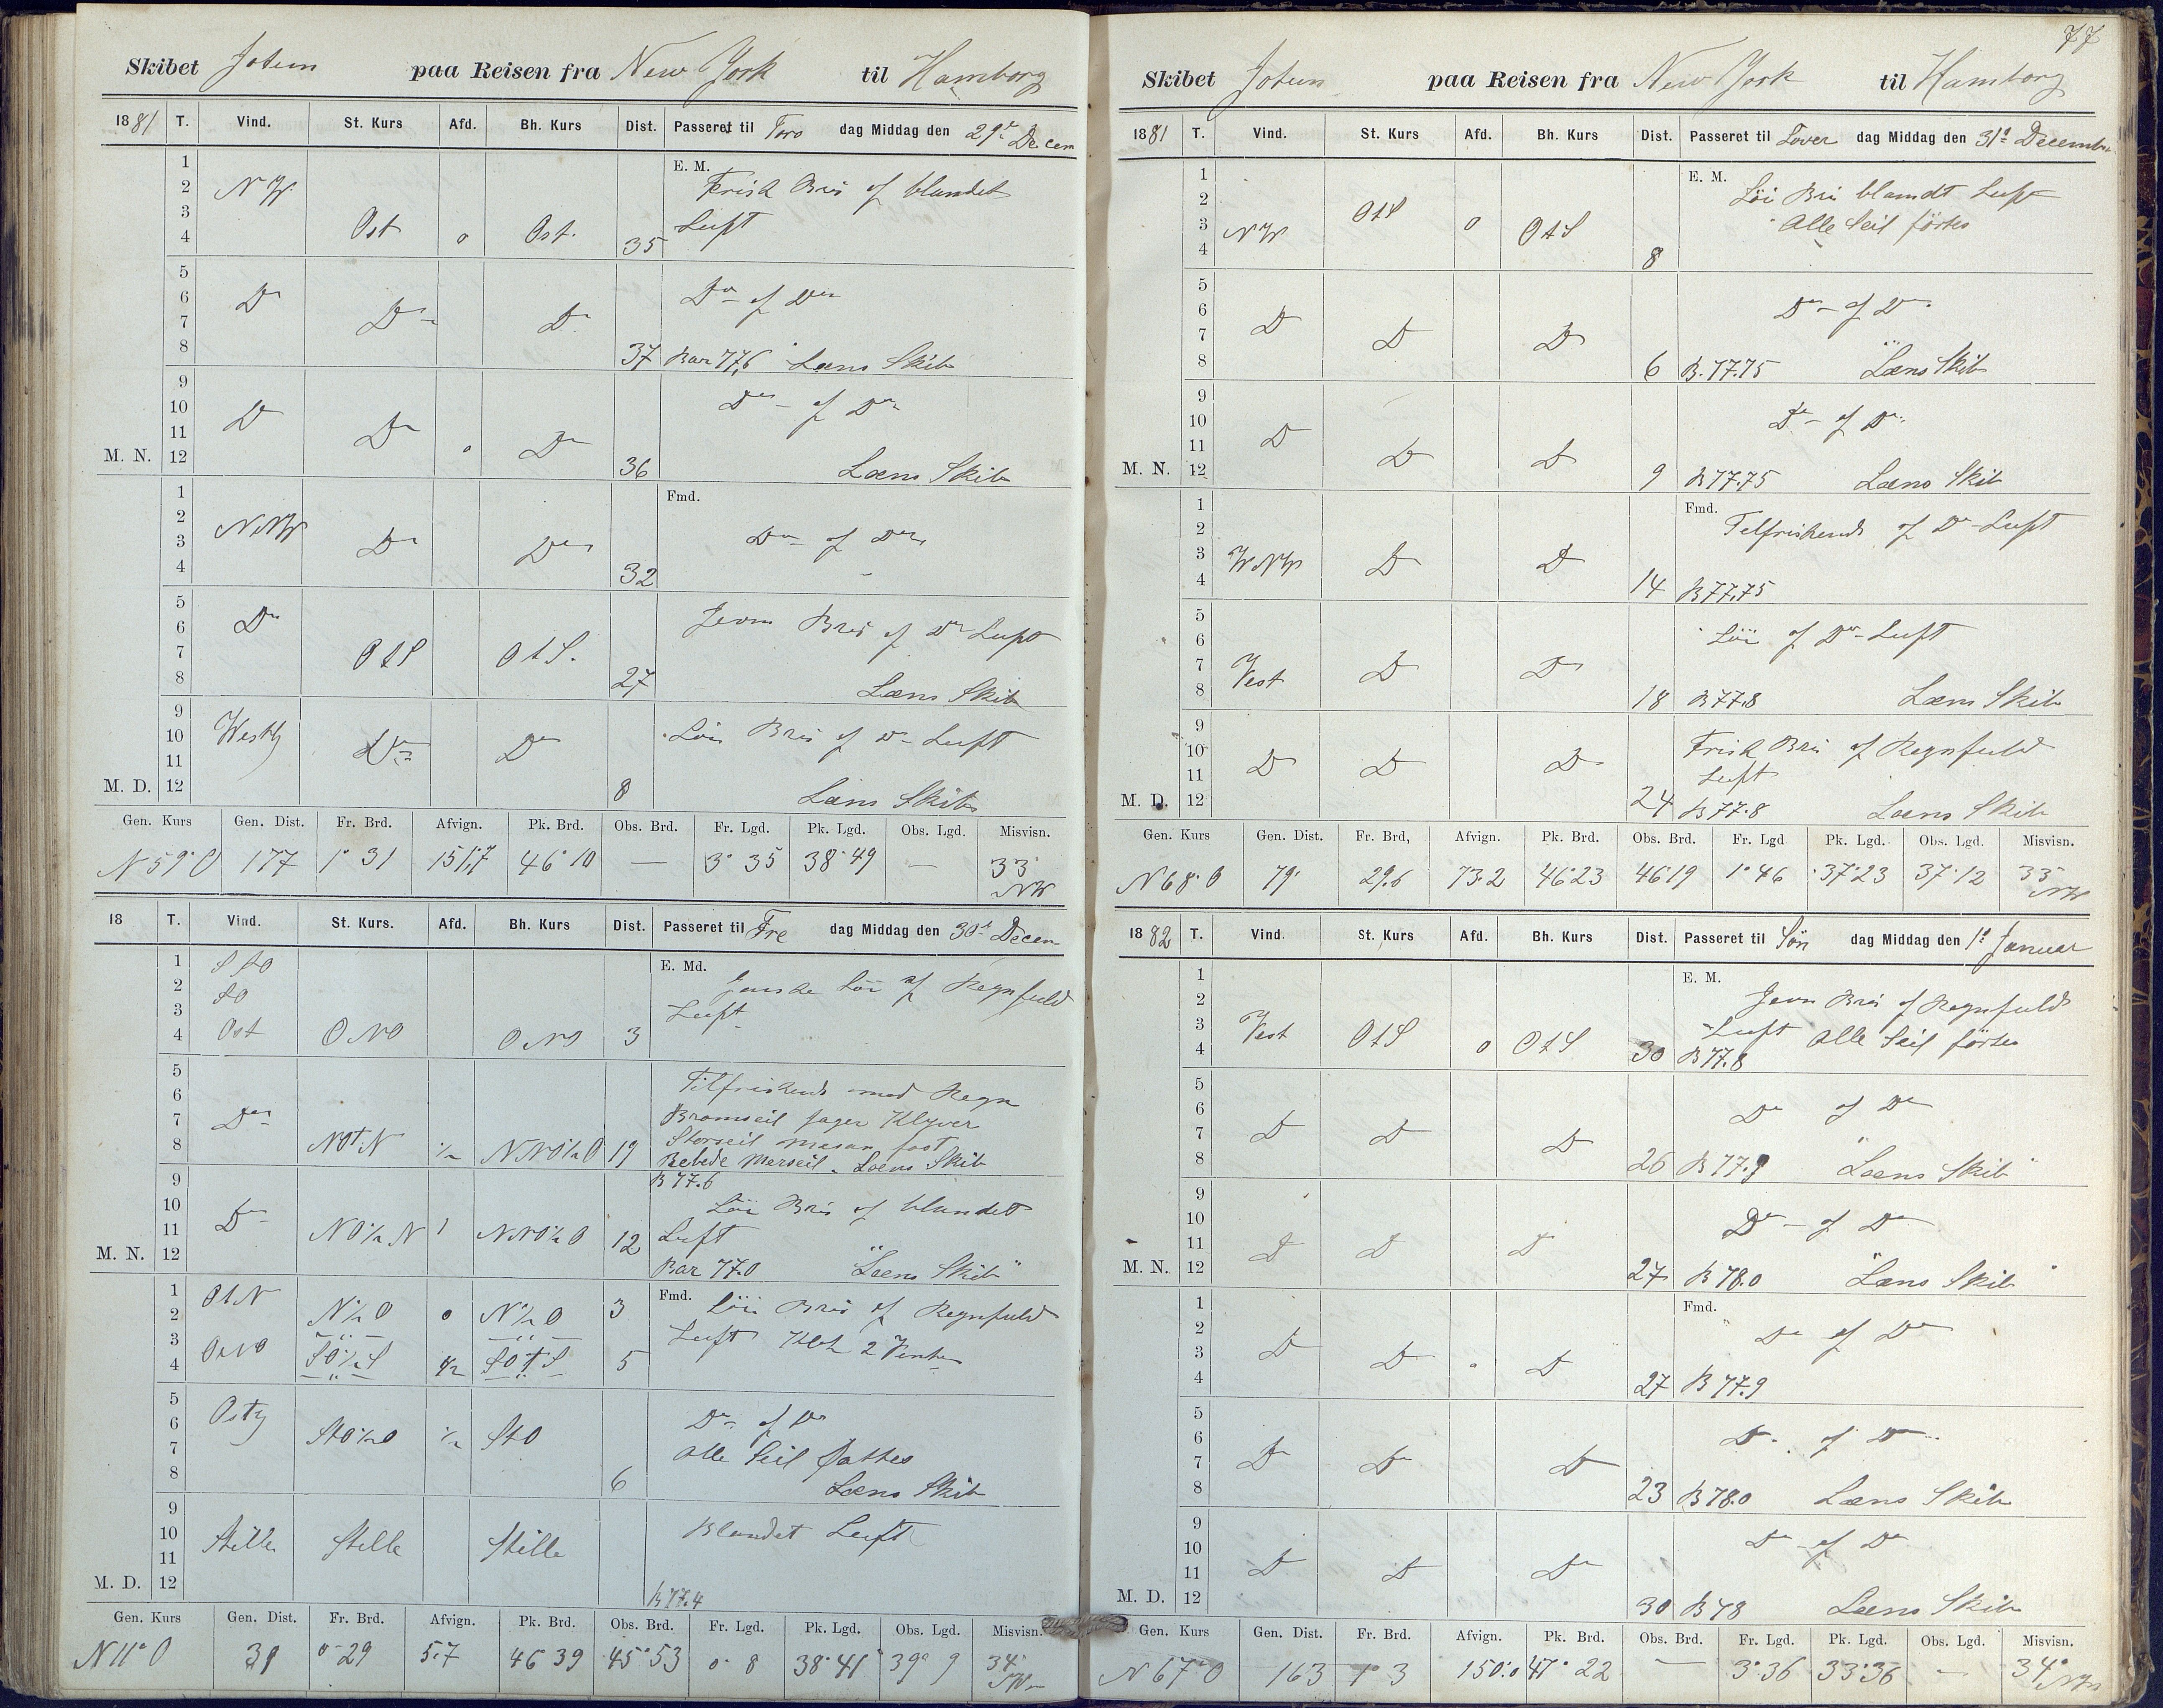 Skibet Jotun paa Reisen fra New York til Hamborg
1881 T. Vind. St. Kurs Afd. Bh. Kurs Dist. Passeret til Tors dag Middag den 29de Decem
1
2
3
4
N W.
Ost
0
Ost.
35
E. M.
Frisk Bris af blandet
Luft
5
6
7
8
Do
Do
Do
37
Do af Do
Bar 77,6 Læns Skib
9
10
11
M. N. 12
Do
Do
0
Do
36
Do af Do
Læns Skib
1
2
3
4
NNW
Do
Do
32
Fmd.
Do af Do
5
6
7
8
Do
OtS
OtS.
27
Jevn Bris af Do Luft
Læns Skib
9
10
11
M. D. 12
Westly
Do
Do
8
Löi Bris af Do Luft
Læns Skib
Gen. Kurs Gen. Dist. Fr. Brd. Afvign. Pk. Brd. Obs. Brd. Fr. Lgd. Pk. Lgd. Obs. Lgd. Misvisn.
N 59° O 177 1° 31 151,7 46° 10 — 3° 35 38° 49 — 33°
NW
18 T. Vind. St. Kurs. Afd. Bh. Kurs Dist. Passeret til Fre dag Middag den 30te Decem
1
2
3
4
StO
SO
Ost
ONO
ONO
3
E. Md.
Ganske Löi af Regnfuld
Luft
5
6
7
8
Do
NOtN
½
NNO½O
19
Tilfriskende med Regn
Bramseil Jager Klyver
Storseil Mesan fast
Rebede Merseil. Læns Skib
9
10
11
M. N. 12
Do
NO½N
1
NNO½O
12
B 77.6
Löi Bris af blandet
Luft
Bar 77.0 "Læns Skib"
1
2
3
4
OtN
ONO
N½O
SO½S
0
½
N½O
SOtS
3
5
Fmd. Löi Bris af Regnfuld
Luft Klok 2 Vendte
5
6
7
8
Ostly
StO½O
½
StO
6
Do af Do
Alle Seil
Læns Skib
9
10
11
M. D. 12
Stille
Stille
Stille
Blandet Luft
B 77.4
Gen. Kurs Gen. Dist. Fr. Brd. Afvign. Pk. Brd. Obs. Brd. Fr. Lgd. Pk. Lgd. Obs. Lgd. Misvisn.
N 11° O 0° 29 5.7 46 39 45° 53 0° 8 38° 41 39° 9 34°
NW
77
Skibet Jotun paa Reisen fra New York til Hamborg
1881 T. Vind. St. Kurs Afd. Bh. Kurs Dist. Passeret til Löver dag Middag den 31te December
1
2
3
4
NW
OtS
0
OtS
8
E. M.
Löi Bris blandt Luft
Alle Seil förtes
5
6
7
8
Do
Do
Do
6
Do af Do
B. 77.75 Læns Skib
9
10
11
M. N. 12
Do
Do
Do
9
Do af Do
B 77.75 Læns Skib
1
2
3
4
WNW
Do
Do
14
Fmd.
Tilfriskende af Do Luft
B 77.75
5
6
7
8
Vest
Do
Do
18
Löi af Do Luft
B 77.8 Læns Skib
9
10
11
M. D. 12
Do
Do
Do
24
Frisk Bris af Regnfuld
Luft
B 77.8 Læns Skib
Gen. Kurs Gen. Dist. Fr. Brd, Afvign. Pk. Brd. Obs. Brd. Fr. Lgd Pk. Lgd. Obs. Lgd. Misvisn.
N 68° O 79 29.6 73.2 46°23 46°19 1° 46 37°23 37° 12 33°
NW
1882 T. Vind. St. Kurs Afd. Bh. Kurs Dist. Passeret til Sön dag Middag den 1ste Januar
1
2
3
4
Vest
OtS
0
OtS
30
E. M.
Jevn Bris af Regnfuld
Luft Alle Seil förtes
B 77.8
5
6
7
8
Do
Do
Do
26
Do af Do
B 77.9 "Læns Skib"
9
10
11
M. N. 12
Do
Do
Do
27
Do af Do
B 78.0 "Læns Skib"
1
2
3
4
Do
Do
0
Do
27
Fmd.
Do af Do
B 77.9
5
6
7
8
Do
Do
Do
23
Do af Do
B 78.0 Læns Skib
9
10
11
M. D. 12
Do
Do
Do
30
Do af Do
B 78 Læns Skib
Gen. Kurs Gen. Dist. Fr. Brd. Afvign. Pk. Brd. Obs. Brd. Fr. Lgd. Pk. Lgd. Obs. Lgd. Misvisn.
N 67° O 163 1° 3 150.0 47° 22 — 3° 36 33°36 — 34° NW